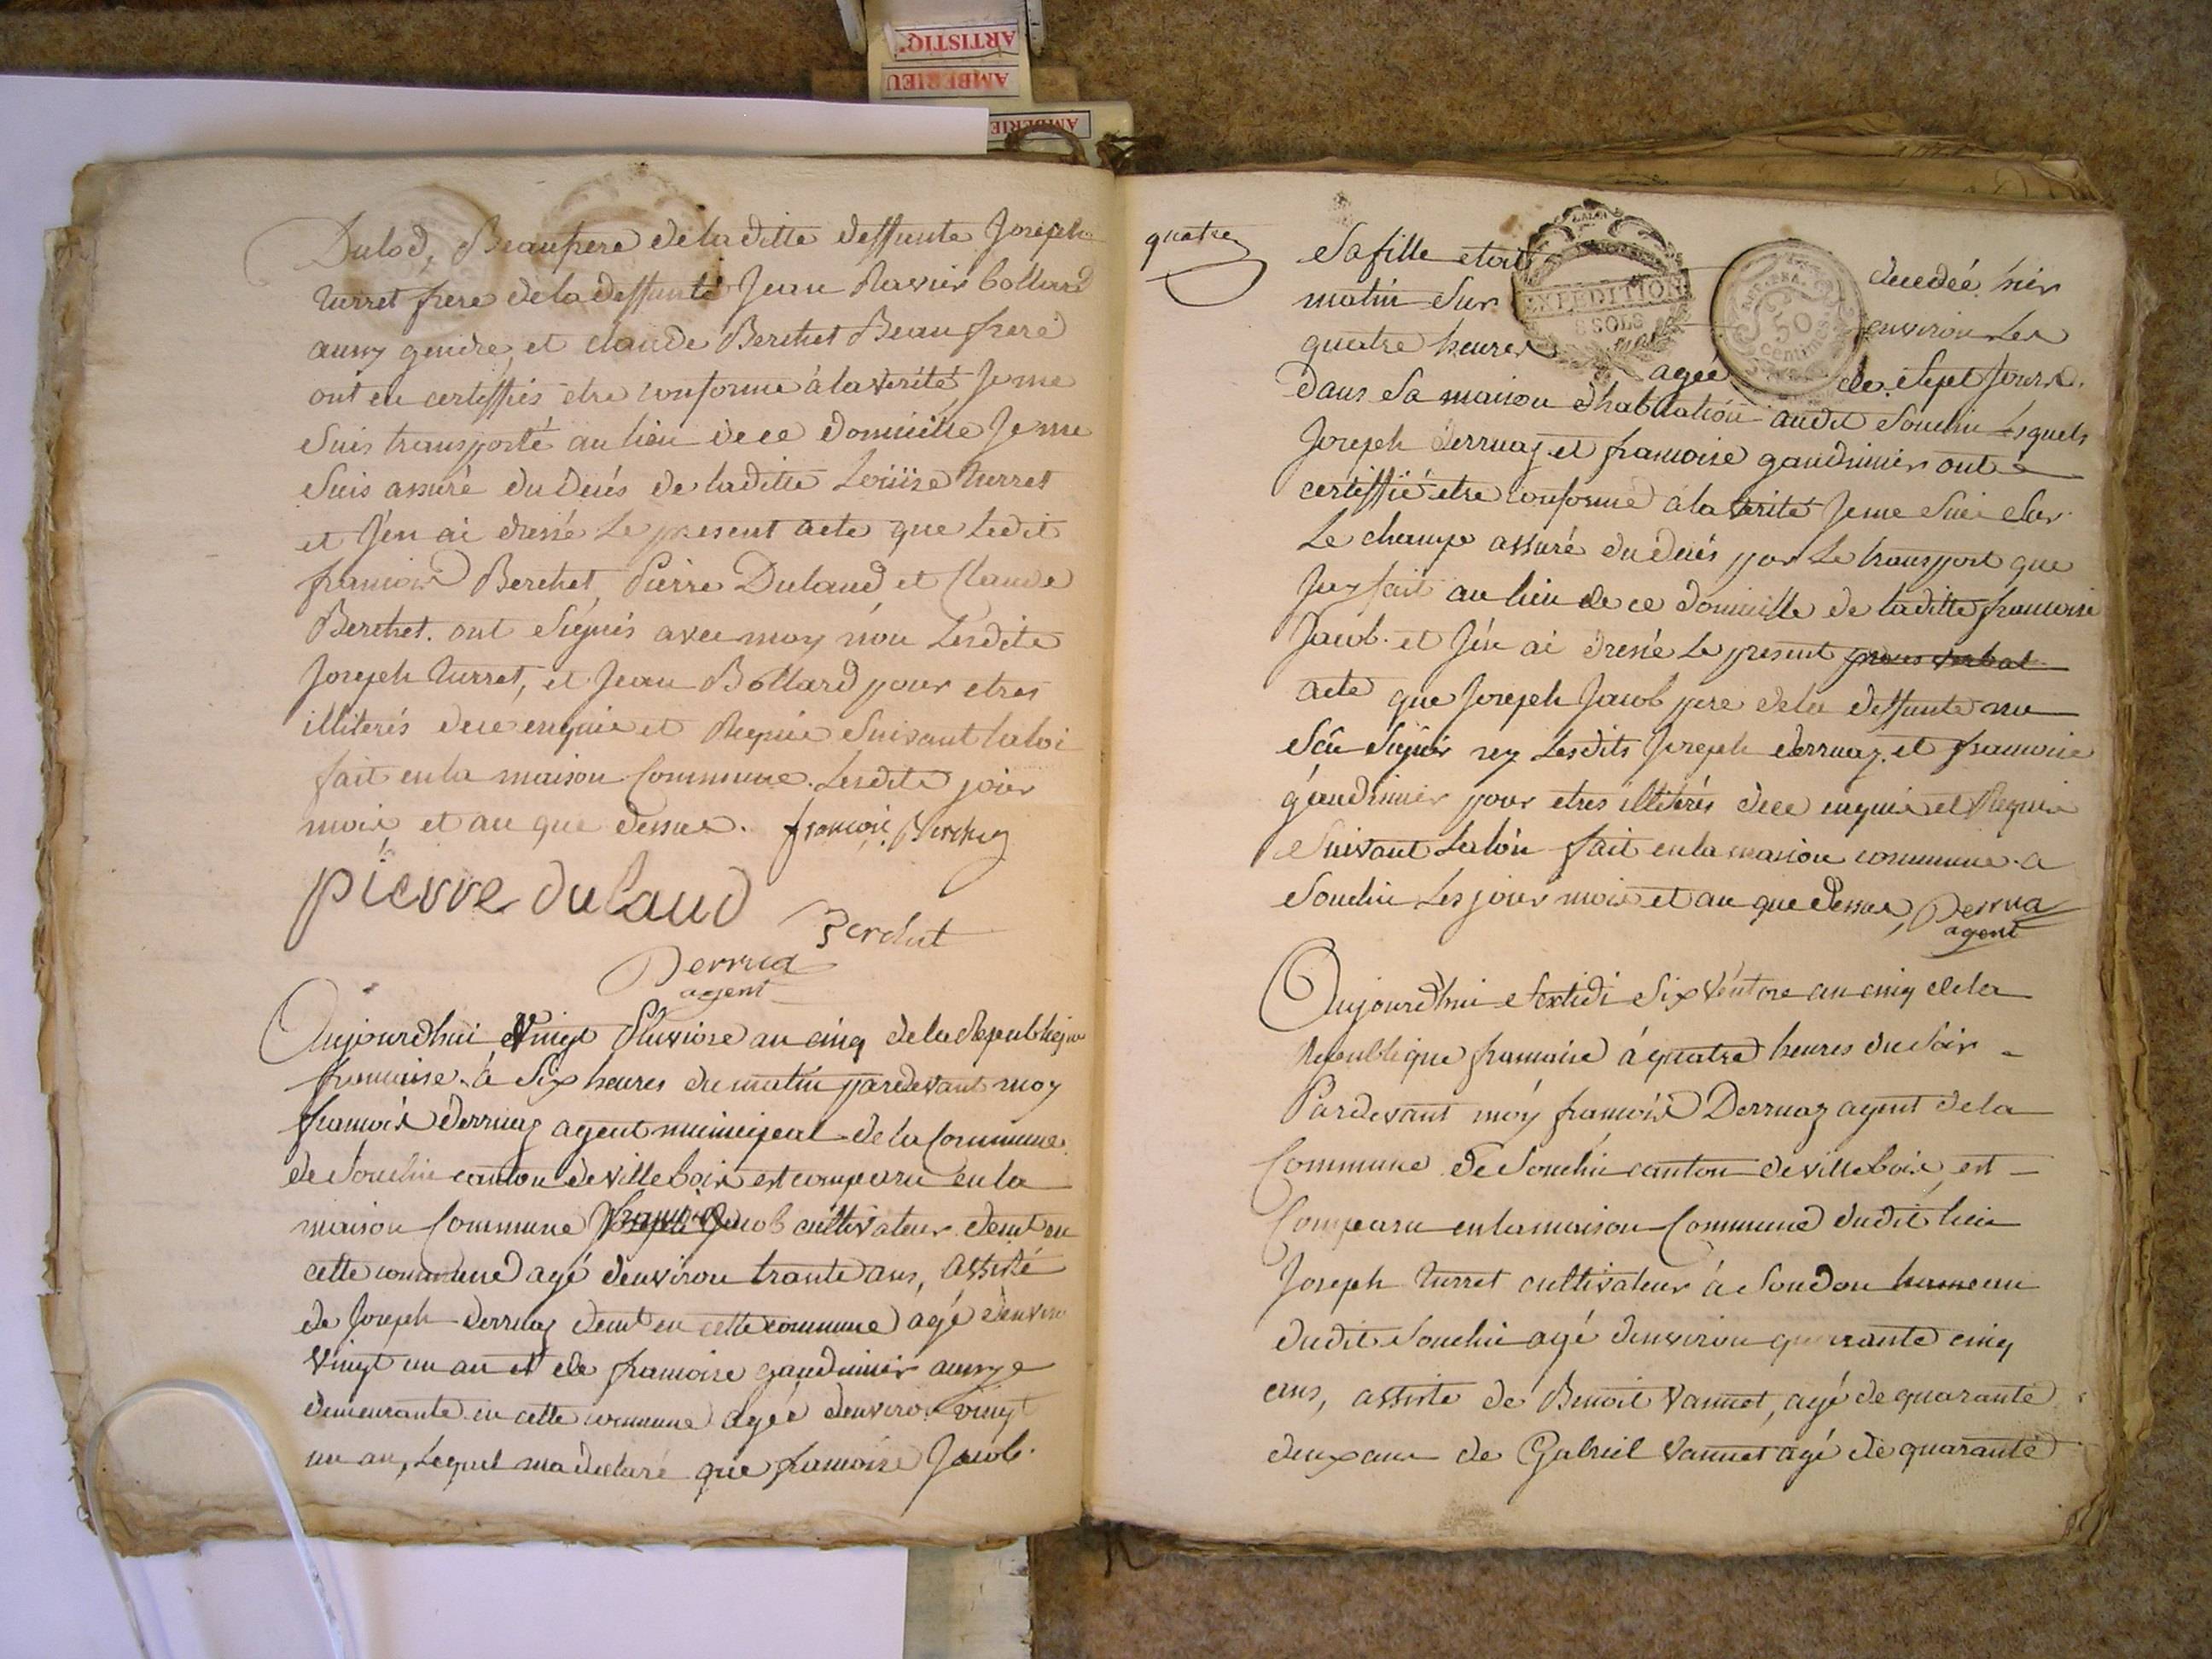 ARTISTIQ
AMBERIEU
AMBERIE
Dulod, Beaupere de la ditte deffunte Joseph
turret frere de la deffunte Jean Ravier bollard
aussy gendre, et claude Berchet Beaufrere
ont en certiffiés etre conforme à la verité, Je me
suis transporté au lieu de ce domicille Je me
suis assuré du decés de laditte Loüise turret
et J'en ai dressé Le present acte que Ledit
francois Berchet, Pierre Dulaud et Claude
Berchet. ont signés avec moy non Lesdits
Joseph turret, et Jean Bollard pour etres
illiterés de ce enquis et Requis suivant la loi
fait en la maison Commune. Lesdits jour
mois et an que dessus. francois Berchet
pierre dulaud
Berchet
Derrua
agent
Aujourd'hui Vingt Pluviose an cinq de la Republique
francaise. à Six heures du matin pardevant moy
francois derruaz agent municipal de la Commune
de Souclin canton de villebois est comparu en la
maison Commune Jacob cultivateur demt en
cette commune agé d'environ trante ans, assisté
de Joseph derruaz demt en cette commune agé d'environ
vingt un an et de francoise gaudinier aussy
demeurante en cette commune agée d'environ vingt
un an, Lequel m'a declaré que francoise Jacob.
quatre
Sa fille etoit decedée hier
matin Sur environ les
quatre heures agée de Sept Jours.
EXPEDITION
8 SOLS
50
Centimes
dans Sa maison d'habitation audit Souclin Lesquels
Joseph derruaz et francoise gaudinier ont
certiffié etre conforme à la verité Je me suis sur
Le champ assuré du decés par Le transport que
J'ay fait au lieu de ce domicille de laditte francoise
Jacob. et J'en ai dressé Le present proces verbal
acte que Joseph Jacob pere de la deffunte n'a
scu signer ny Lesdits Joseph derruaz et francoise
gaudinier pour etres illiterés de ce enquis et Requis
suivant La loi fait en la maison commune a
Souclin Les jour mois et an que dessus, Derrua
agent
Aujourd'hui Sextidi Six Ventose an cinq de la
Republique francaise à quatre heures du soir
Pardevant moy francois Derruaz agent de la
Commune de Souclin canton de villebois, est
Comparu en la maison Commune dudit lieu
Joseph turret cultivateur à Soudon hameau
dudit Souclin agé d'environ quarante cinq
ans, assisté de Benoit Vannet, agé de quarante
deux ans de Gabriel Vannet agé de quarante